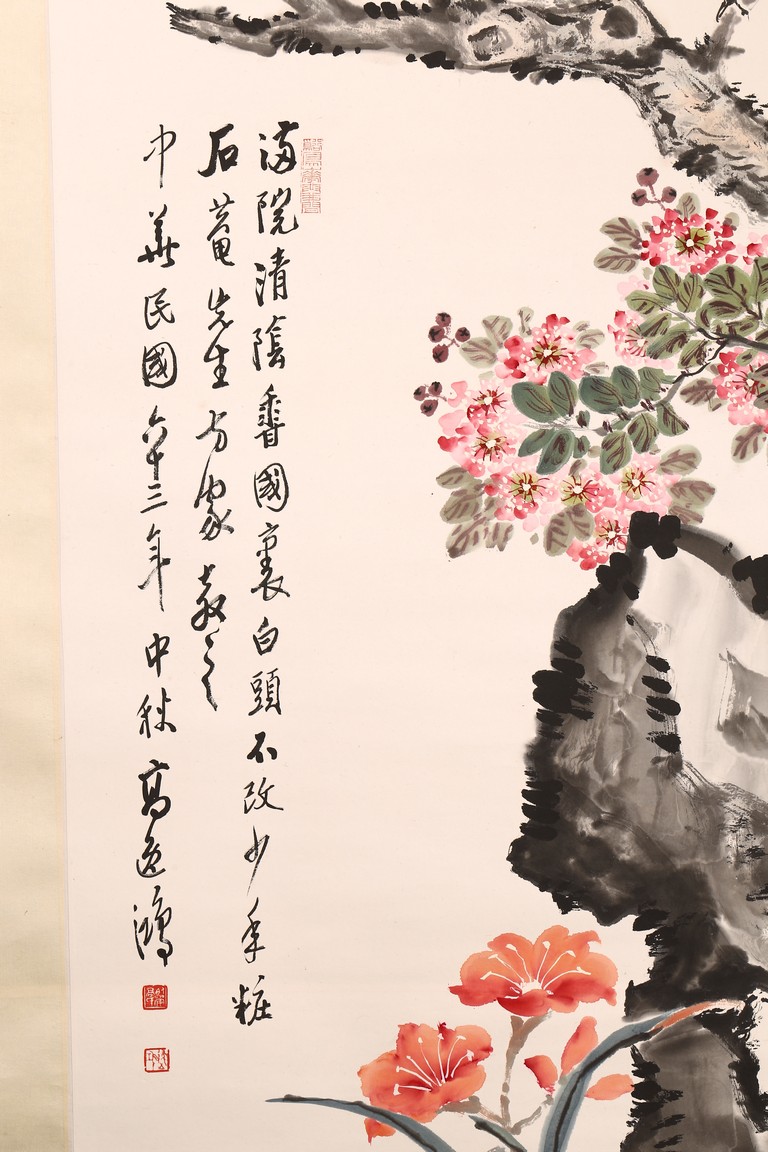 滿院清陰香國裏白頭不改少年粧
石菴先生方家教之
中華民國六十三年中秋高逸鴻